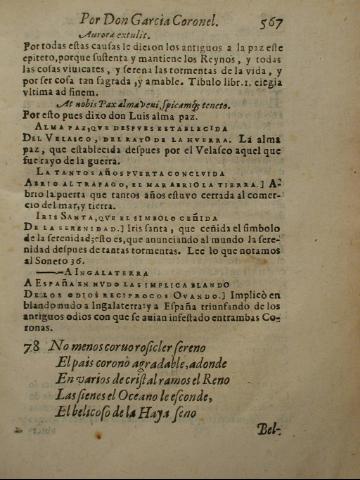 Por Don Garcia Coronel. 567
Aurora extulit.
Por todas estas causas le dieron los antiguos a la paz este
epiteto, porque sustenta y mantiene los Reynos, y todas
las cosas viuicates, y serena las tormentas de la vida, y
por ser cosa tan sagrada, y amable. Tibulo libr. 1. elegia
vltima ad finem.
At nobis Pax alma veni, spicamq; teneto.
Por esto pues dixo don Luis alma paz.
ALMA PAZ, QVE DESPVES ESTABLECIDA
DEL VELASCO, DEL RAYO DE LA GVERRA. La alma
paz, que establecida despues por el Velasco aquel que
fue rayo de la guerra.
LA TANTOS AÑOS PVERTA CONCLVIDA
ABRIO AL TRAFAGO, EL MAR ABRIO LA TIERRA.] A-
brio la puerta que tantos años estuvo cerrada al comer-
cio del mar, y tierra.
IRIS SANTA, QVE EL SIMBOLO CEÑIDA
DE LA SERENIDAD.] Iris santa, que ceñida el simbolo
de la serenidad; esto es, que anunciando al mundo la sere-
nidad despues de tantas tormentas. Lee lo que notamos
al Soneto 36.
——A INGALATERRA
A ESPAÑA EN NVDO LAS IMPLICA BLANDO
DE LOS ODIOS RECIPROCOS OVANDO.] Implicò en
blando nudo a Ingalaterra y a España triunfando de los
antiguos odios con que se auian infestado entrambas Co-
ronas.
78 No menos coruo rosicler sereno
El pais coronò agradable, adonde
En varios de cristal ramos el Reno
Las sienes el Oceano le esconde,
El belicoso de la Haya seno
Bel-